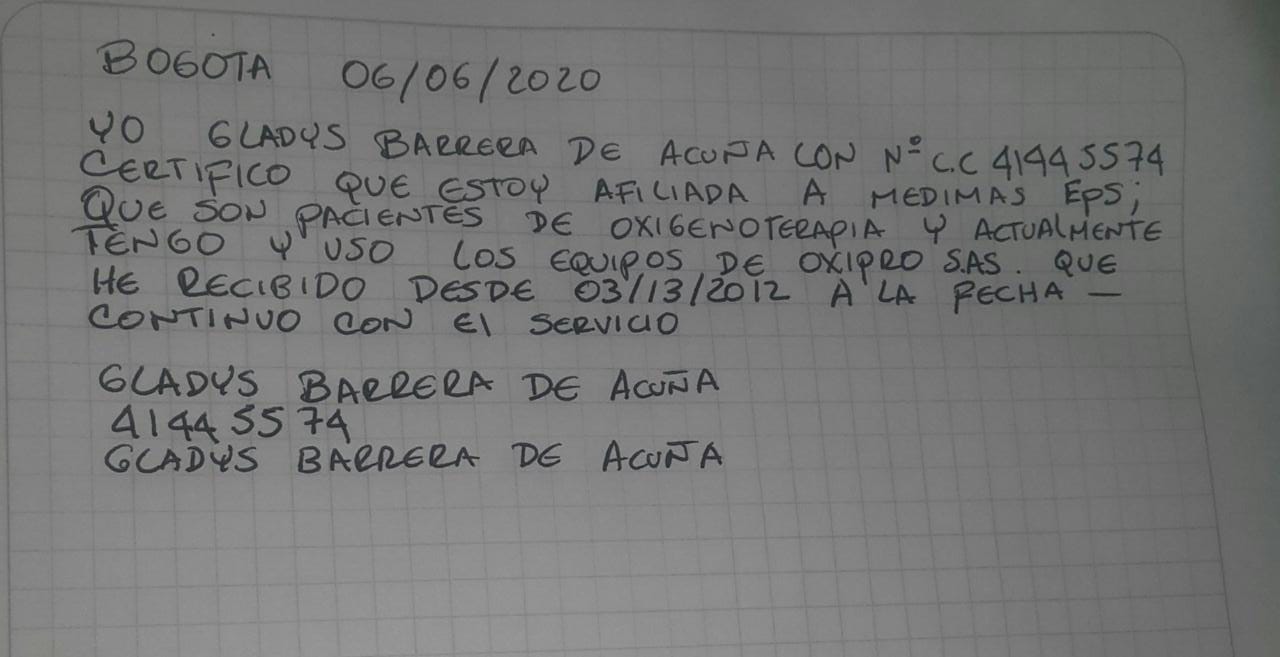 BOGOTA 06/06/2020
YO GLADYS BARRERA DE ACUÑA CON Nº C.C 41445574
CERTIFICO QUE ESTOY AFILIADA A MEDIMAS EPS;
QUE SON PACIENTES DE OXIGENOTERAPIA Y ACTUALMENTE
TENGO Y USO LOS EQUIPOS DE OXIPRO S.AS. QUE
HE RECIBIDO DESDE 03/13/2012 A LA FECHA —
CONTINUO CON El SERVICIO
GLADYS BARRERA DE ACUÑA
41445574
GLADYS BARRERA DE ACUÑA